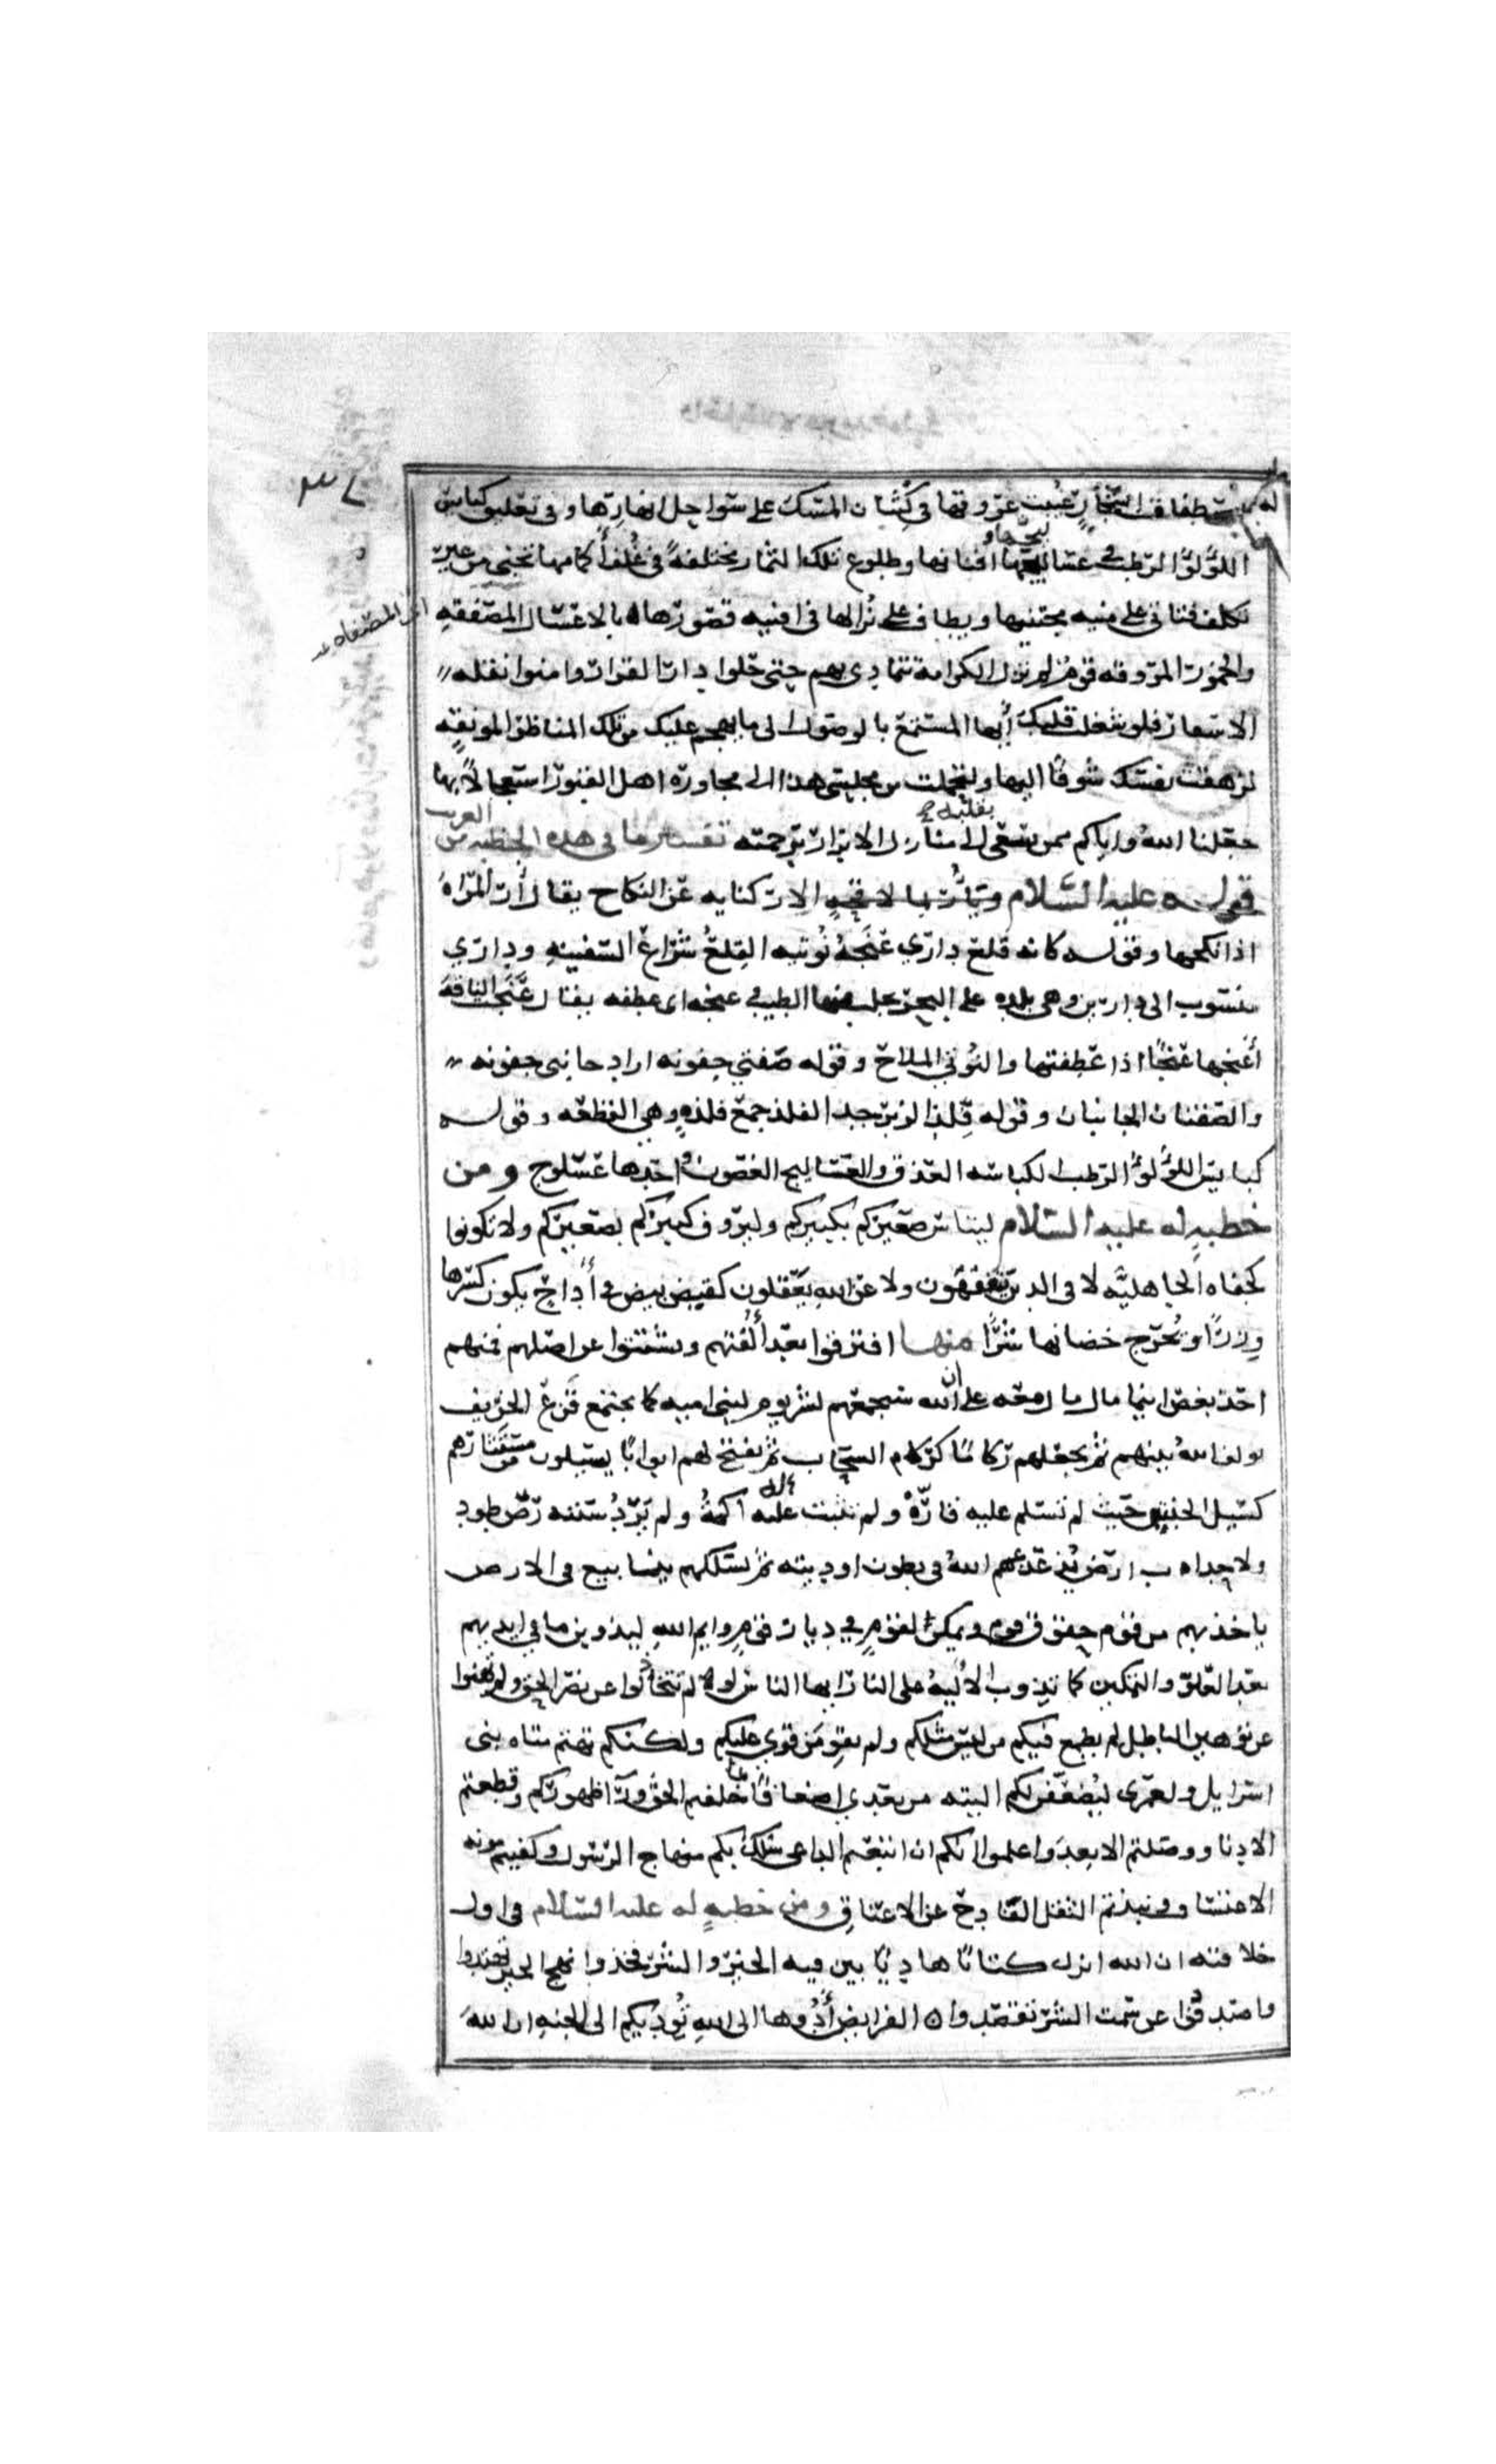 اصطفاق اشجار غيبت عروقها في كثبان المسك على سواحل انهارها وفي تعليق كبايس
اللؤلؤ الرطب في عساليجها و افنانها وطلوع تلك الثمار مختلفة في غلف اكمامها تجنى من غير
تكلف فتاتي على منيه مجتنيها ويطاف على نزالها في افنيه قصورها بالاعسال المصفقه
والخمور المروقه قوم لم تزل الكرامة تتمادى بهم حتى حلوا دار القرار وامنوا نقله
الاسفار فلو شغلت قلبك أيها المستمع بالوصول الى ما يهجم عليك من تلك المناظر المونقه
لزهقت نفسك شوقا اليها ولتحملت من مجلسي هذا الى مجاوره اهل القبور استعجالا بها
جعلنا الله واياكم ممن يسعى بقلبه الى منازل الابرار برحمته تفسير ما في هذه الخطبه من الغريب
قوله عليه السلام ويؤر بملاقحه الار كنايه عن النكاح يقال أر المراه
اذا نكحها وقوله كانه قلع داري عنجه نوتيه القلع شراع السفينه وداري
منسوب الى دارين وهي بلده على البحر يجلب منها الطيب وعنجه اى عطفه يقال عنجت الناقه
أعنجها عنجا اذا عطفتها والنوتي الملاح وقوله ضفتي جفونه اراد جانبي جفونه
والضفتان الجانبان وقوله فلذ الزبرجد الفلذ جمع فلذه وهي القطعه وقوله
كبايس اللؤلؤ الرطب الكباسه العذق والعساليج الغصون واحدها عسلوج ومن
خطبه له عليه السلام ليتاس صغيركم بكبيركم وليروف كبيركم بصغيركم ولا تكونوا
كجفاه الجاهليه لا في الدين يتفقهون ولا عن الله يعقلون كقيض بيض في أداح يكون كسرها
وزرا ويخرج حضانها شرا منها افترقوا بعد ألفتهم وتشتتوا عن اصلهم فمنهم
اخذ بغصن اينما مال مال معه على ان الله سيجمعهم لشر يوم لبني اميه كما يجتمع قزع الخريف
يولف الله بينهم ثم يجعلهم ركاما كركام السحاب ثم يفتح لهم ابوابا يسيلون من مستثارهم
كسيل الجنتين حيث لم تسلم عليه قارة ولم تثبت عليه اكمة ولم يرد سننه رص طود
ولا حداب ارض يذعذعهم الله في بطون اوديته ثم يسلكهم ينابيع في الارض
ياخذ بهم من قوم حقوق قوم ويمكن لقوم في ديار قوم وايم الله ليذوبن ما في ايديهم
بعد العلو والتمكين كما تذوب الألية على النار ايها الناس لو لم تتخاذلوا عن نصر الحق ولم تهنوا
عن توهين الباطل لم يطمع فيكم من ليس مثلكم ولم يقو من قوي عليكم ولكنكم تهتم متاه بني
اسرايل ولعمري ليضعفن لكم التيه من بعدي اضعافا بما خلفتم الحق وراء ظهوركم وقطعتم
الادنا ووصلتم الابعد واعلموا انكم ان اتبعتم الداعي لكم سلك بكم منهاج الرسول وكفيتم مونه
الاعتساف ونبذتم الثقل الفادح عن الاعناق ومن خطبه له عليه السلام في اول
خلافته ان الله انزل كتابا هاديا بين فيه الخير والشر فخذوا نهج الخير تهتدوا
واصدفوا عن سمت الشر تقصدوا الفرايض أدوها الى الله تؤدكم الى الجنه ان الله